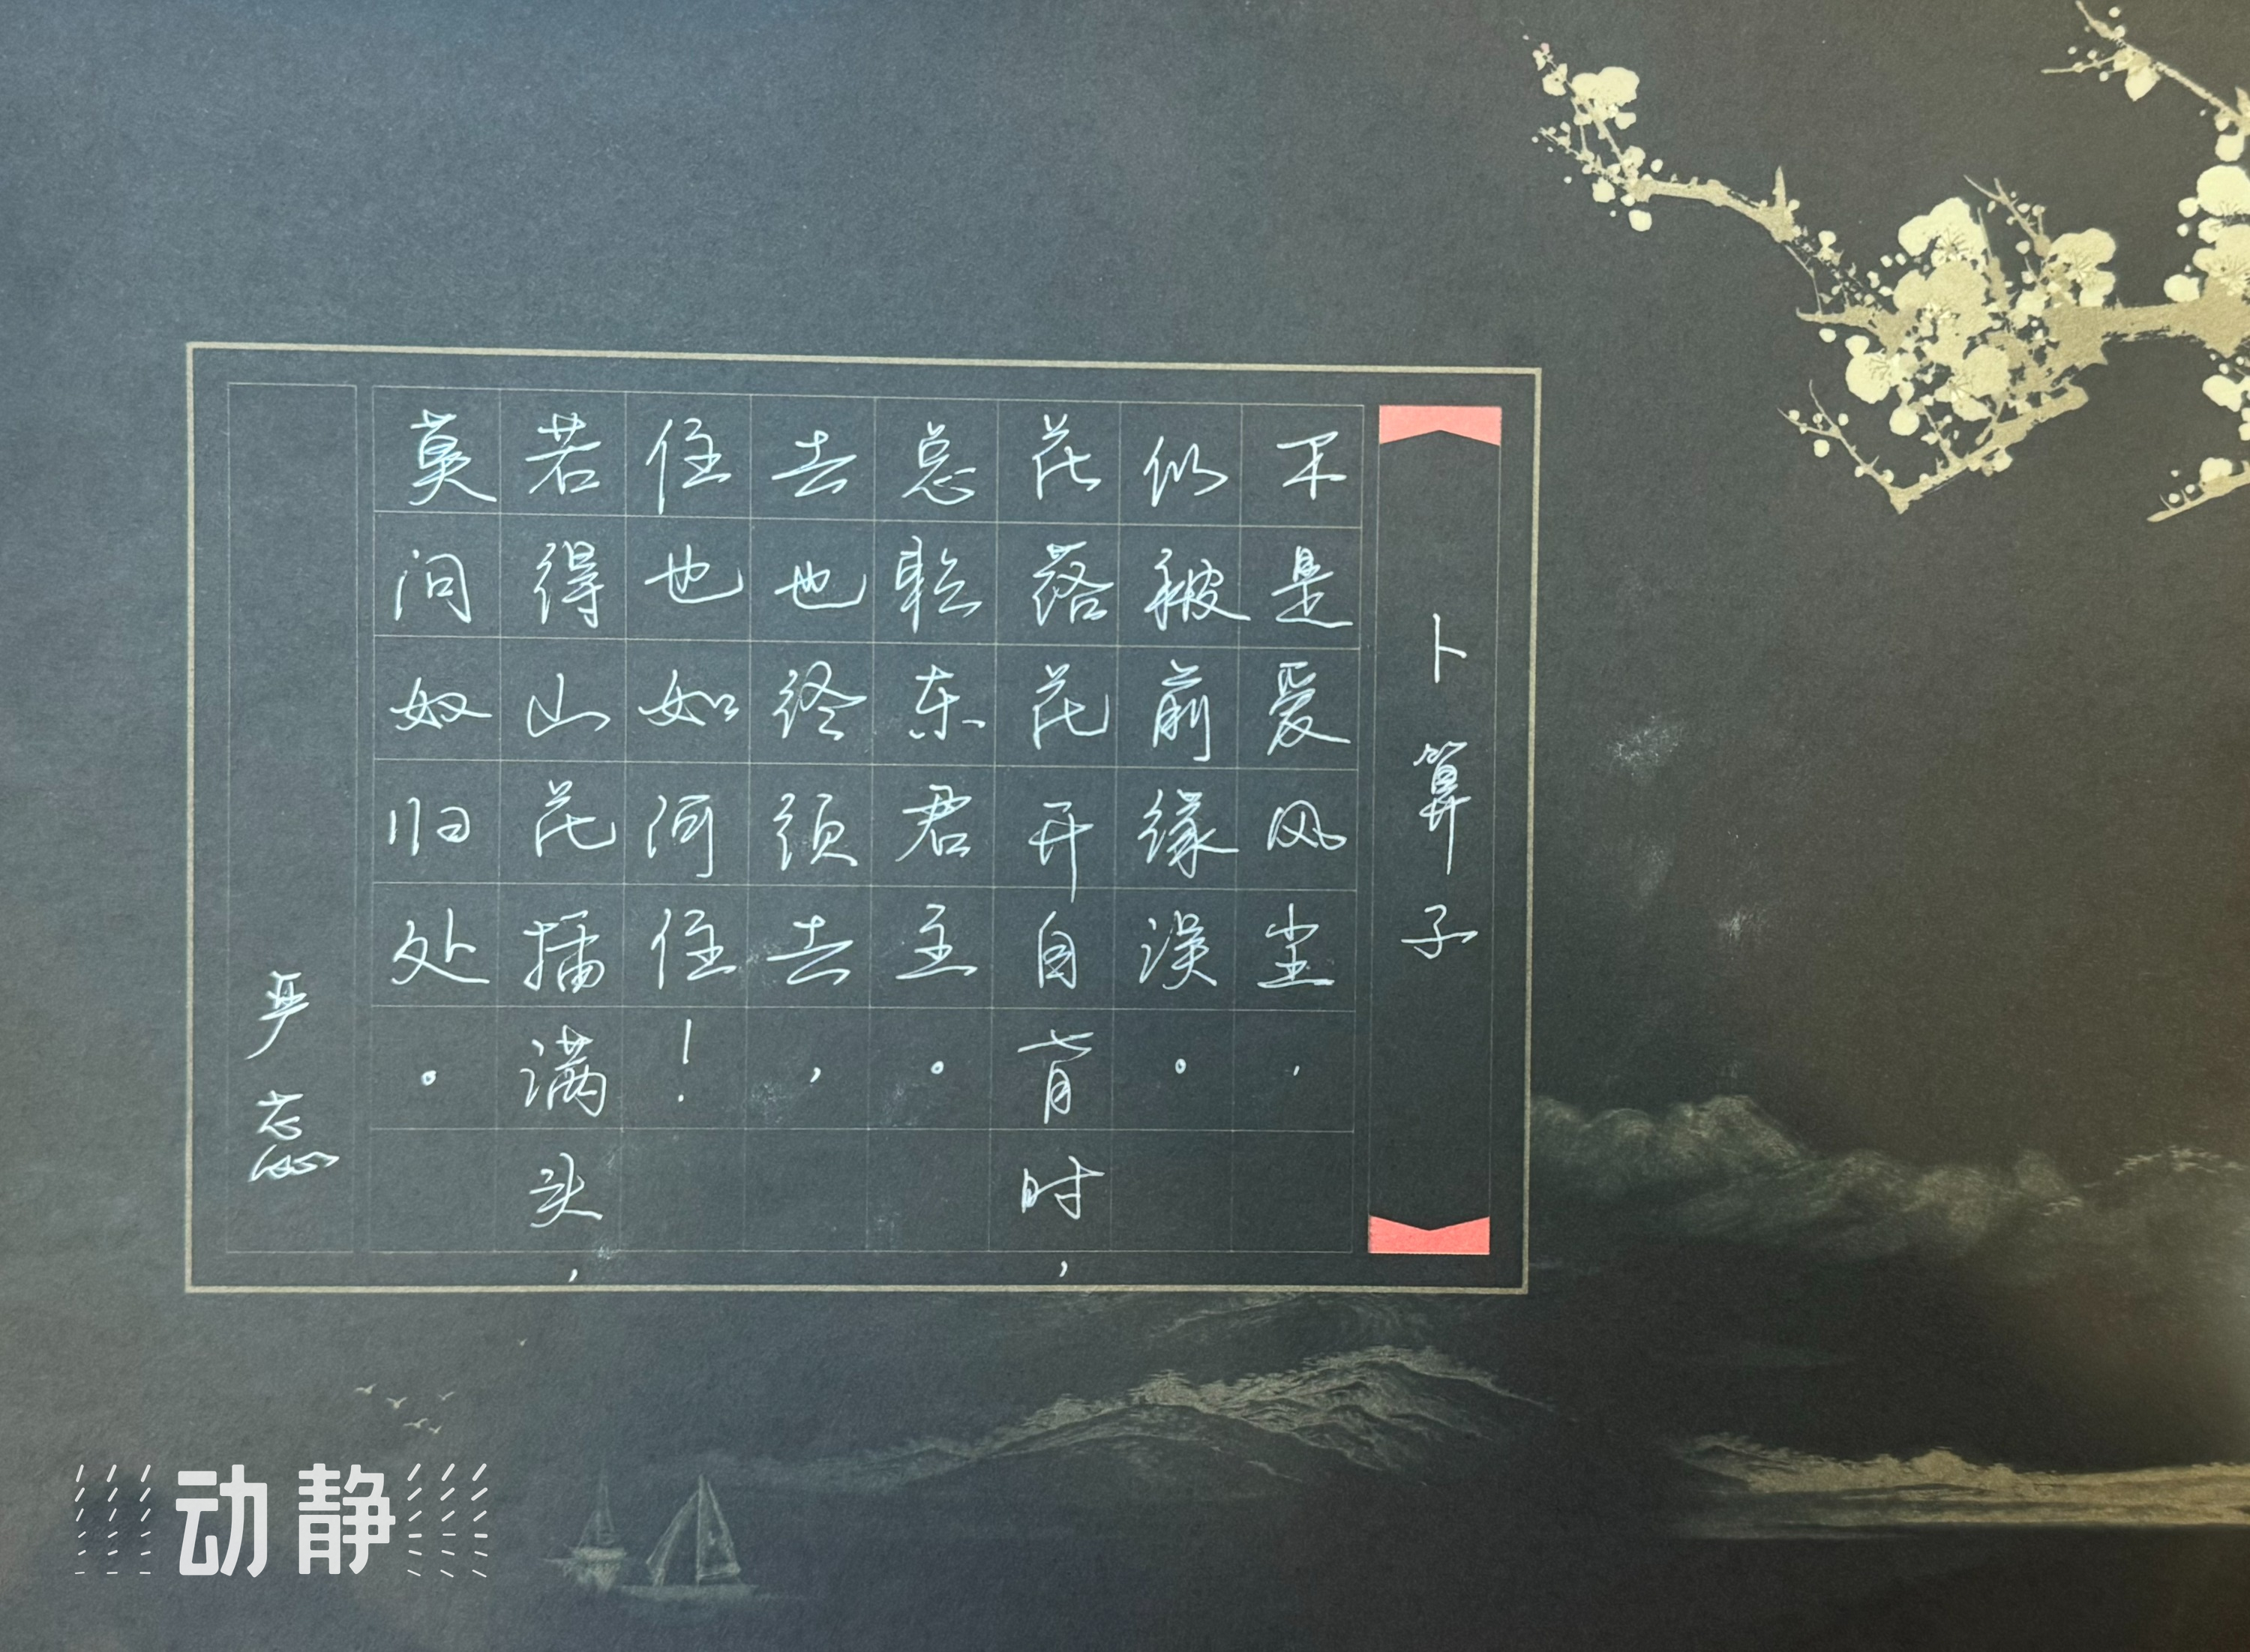 卜算子
不是爱风尘，
似被前缘误。
花落花开自有时，
总赖东君主。
去也终须去，
住也如何住！
若得山花插满头，
莫问奴归处。
严蕊
动静